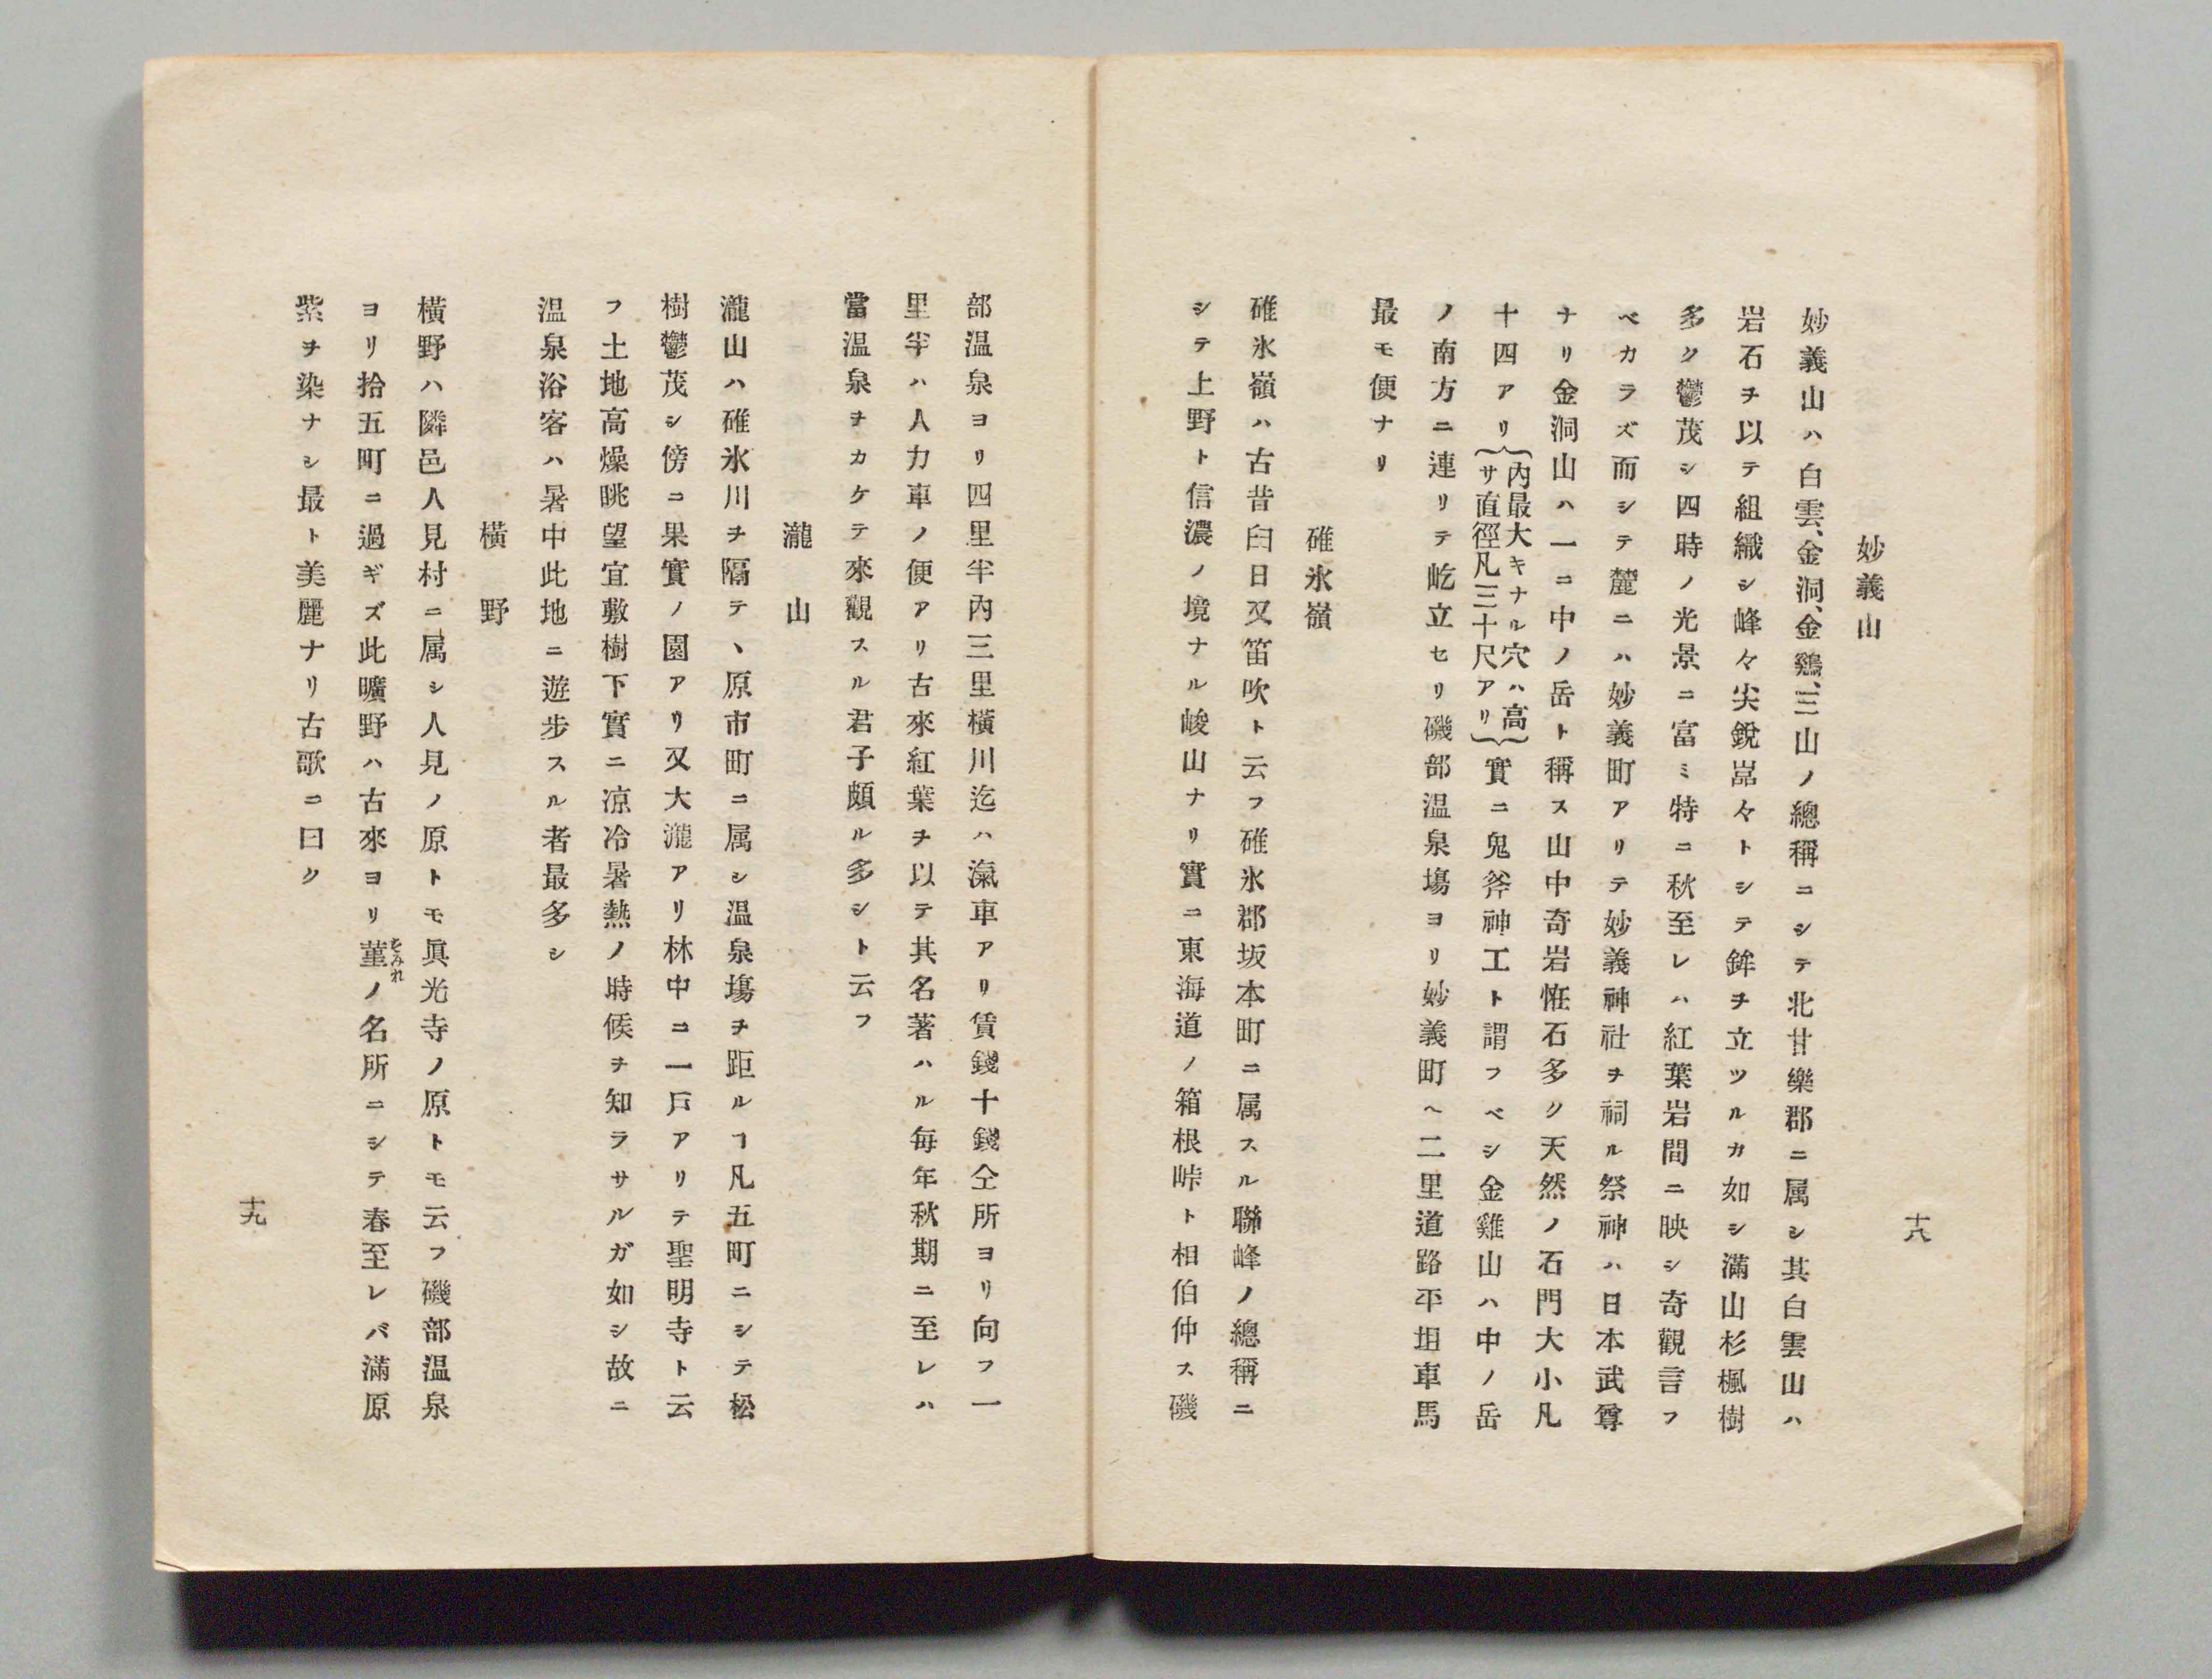 十八
妙義山
妙義山ハ白雲、金洞、金鷄、三山ノ總稱ニシテ北甘樂郡ニ属シ其白雲山ハ
岩石ヲ以テ組織シ峰々尖銳嵓々トシテ鉾ヲ立ツルカ如シ滿山杉楓樹
多ク鬱茂シ四時ノ光景ニ富ミ特ニ秋至レハ紅葉岩間ニ映シ奇觀言フ
ベカラズ而シテ麓ニハ妙義町アリテ妙義神社ヲ祠ル祭神ハ日本武尊
ナリ金洞山ハ一ニ中ノ岳ト稱ス山中奇岩恠石多ク天然ノ石門大小凡
十四アリ{內最大キナル穴ハ高サ直徑凡三十尺アリ}實ニ鬼斧神工ト謂フベシ金雞山ハ中ノ岳
ノ南方ニ連リテ屹立セリ磯部温泉塲ヨリ妙義町ヘ二里道路平坦車馬
最モ便ナリ
碓氷嶺
碓氷嶺ハ古昔臼日又笛吹ト云フ碓氷郡坂本町ニ属スル聯峰ノ總稱ニ
シテ上野ト信濃ノ境ナル峻山ナリ實ニ東海道ノ箱根峠ト相伯仲ス磯
部温泉ヨリ四里半內三里橫川迄ハ滊車アリ賃錢十錢仝所ヨリ向フ一
里半ハ人力車ノ便アリ古來紅葉ヲ以テ其名著ハル每年秋期ニ至レハ
當温泉ヲカケテ來觀スル君子頗ル多シト云フ
瀧山
瀧山ハ碓氷川ヲ隔テヽ原市町ニ属シ温泉塲ヲ距ルヿ凡五町ニシテ松
樹鬱茂シ傍ニ果實ノ園アリ又大瀧アリ林中ニ一戶アリテ聖明寺ト云
フ土地高燥眺望宜敷樹下實ニ凉冷暑熱ノ時候ヲ知ラサルガ如シ故ニ
温泉浴客ハ暑中此地ニ遊步スル者最多シ
橫野
橫野ハ隣邑人見村ニ属シ人見ノ原トモ眞光寺ノ原トモ云フ磯部温泉
ヨリ拾五町ニ過ギズ此曠野ハ古來ヨリ菫すみれノ名所ニシテ春至レバ滿原
紫ヲ染ナシ最ト美麗ナリ古歌ニ曰ク
十九